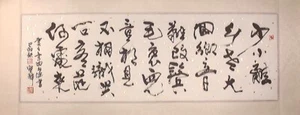 少小離
家老大
回鄉音
難改鬢
毛衰兒
童相見
不相識笑
問客從
何處來